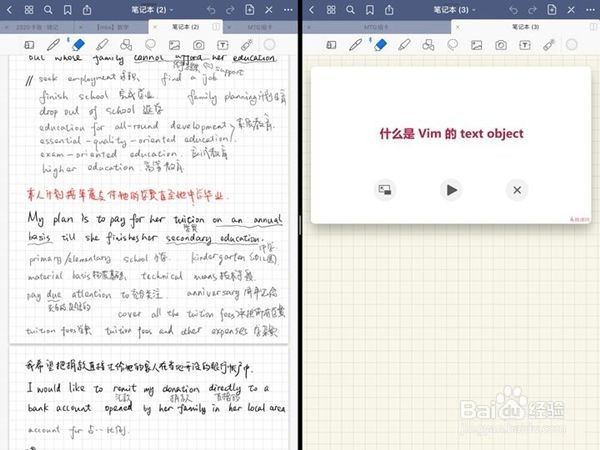 笔记本 (2)
2020手译:错记
【mba】数学
笔记本 (2)
but whose family cannot afford her education.
support
// seek employment 求职 find a job
finish school 完成学业 family planning 计划生育
drop out of school 退学
education for all-round development
素质教育
essential-quality-oriented education
exam-oriented education. 应试教育
higher education. 高等教育
本人计划按年度支付她的学费直至她中学毕业.
My plan is to pay for her tuition on an annual
学费
basis till she finishes her secondary education.
中学
primary/elementary school 小学. kindergarten 幼儿园
material basis 物质基础 technical means 技术手段
pay due attention to 充分关注 anniversary 周年纪念
cover all the tuition fees 承担所有学费
tuition fees 学费 tuition fees and other expenses 学杂费
我希望把捐款直接汇给她的家人在当地开设的银行帐户中.
I would like to remit my donation directly to a
汇款 捐款 直接的
bank account opened by her family in her local area
account for 占…比例
笔记本 (3)
MTG插卡
笔记本 (3)
什么是 Vim 的 text object
Baidu经验
jingyan.baidu.com